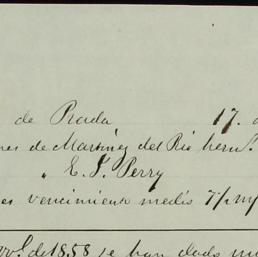 de Prada 17.
de Martinez del Rio herm.
" E. J. Perry
vencimiento medio 7/m
de 1858 se han dado